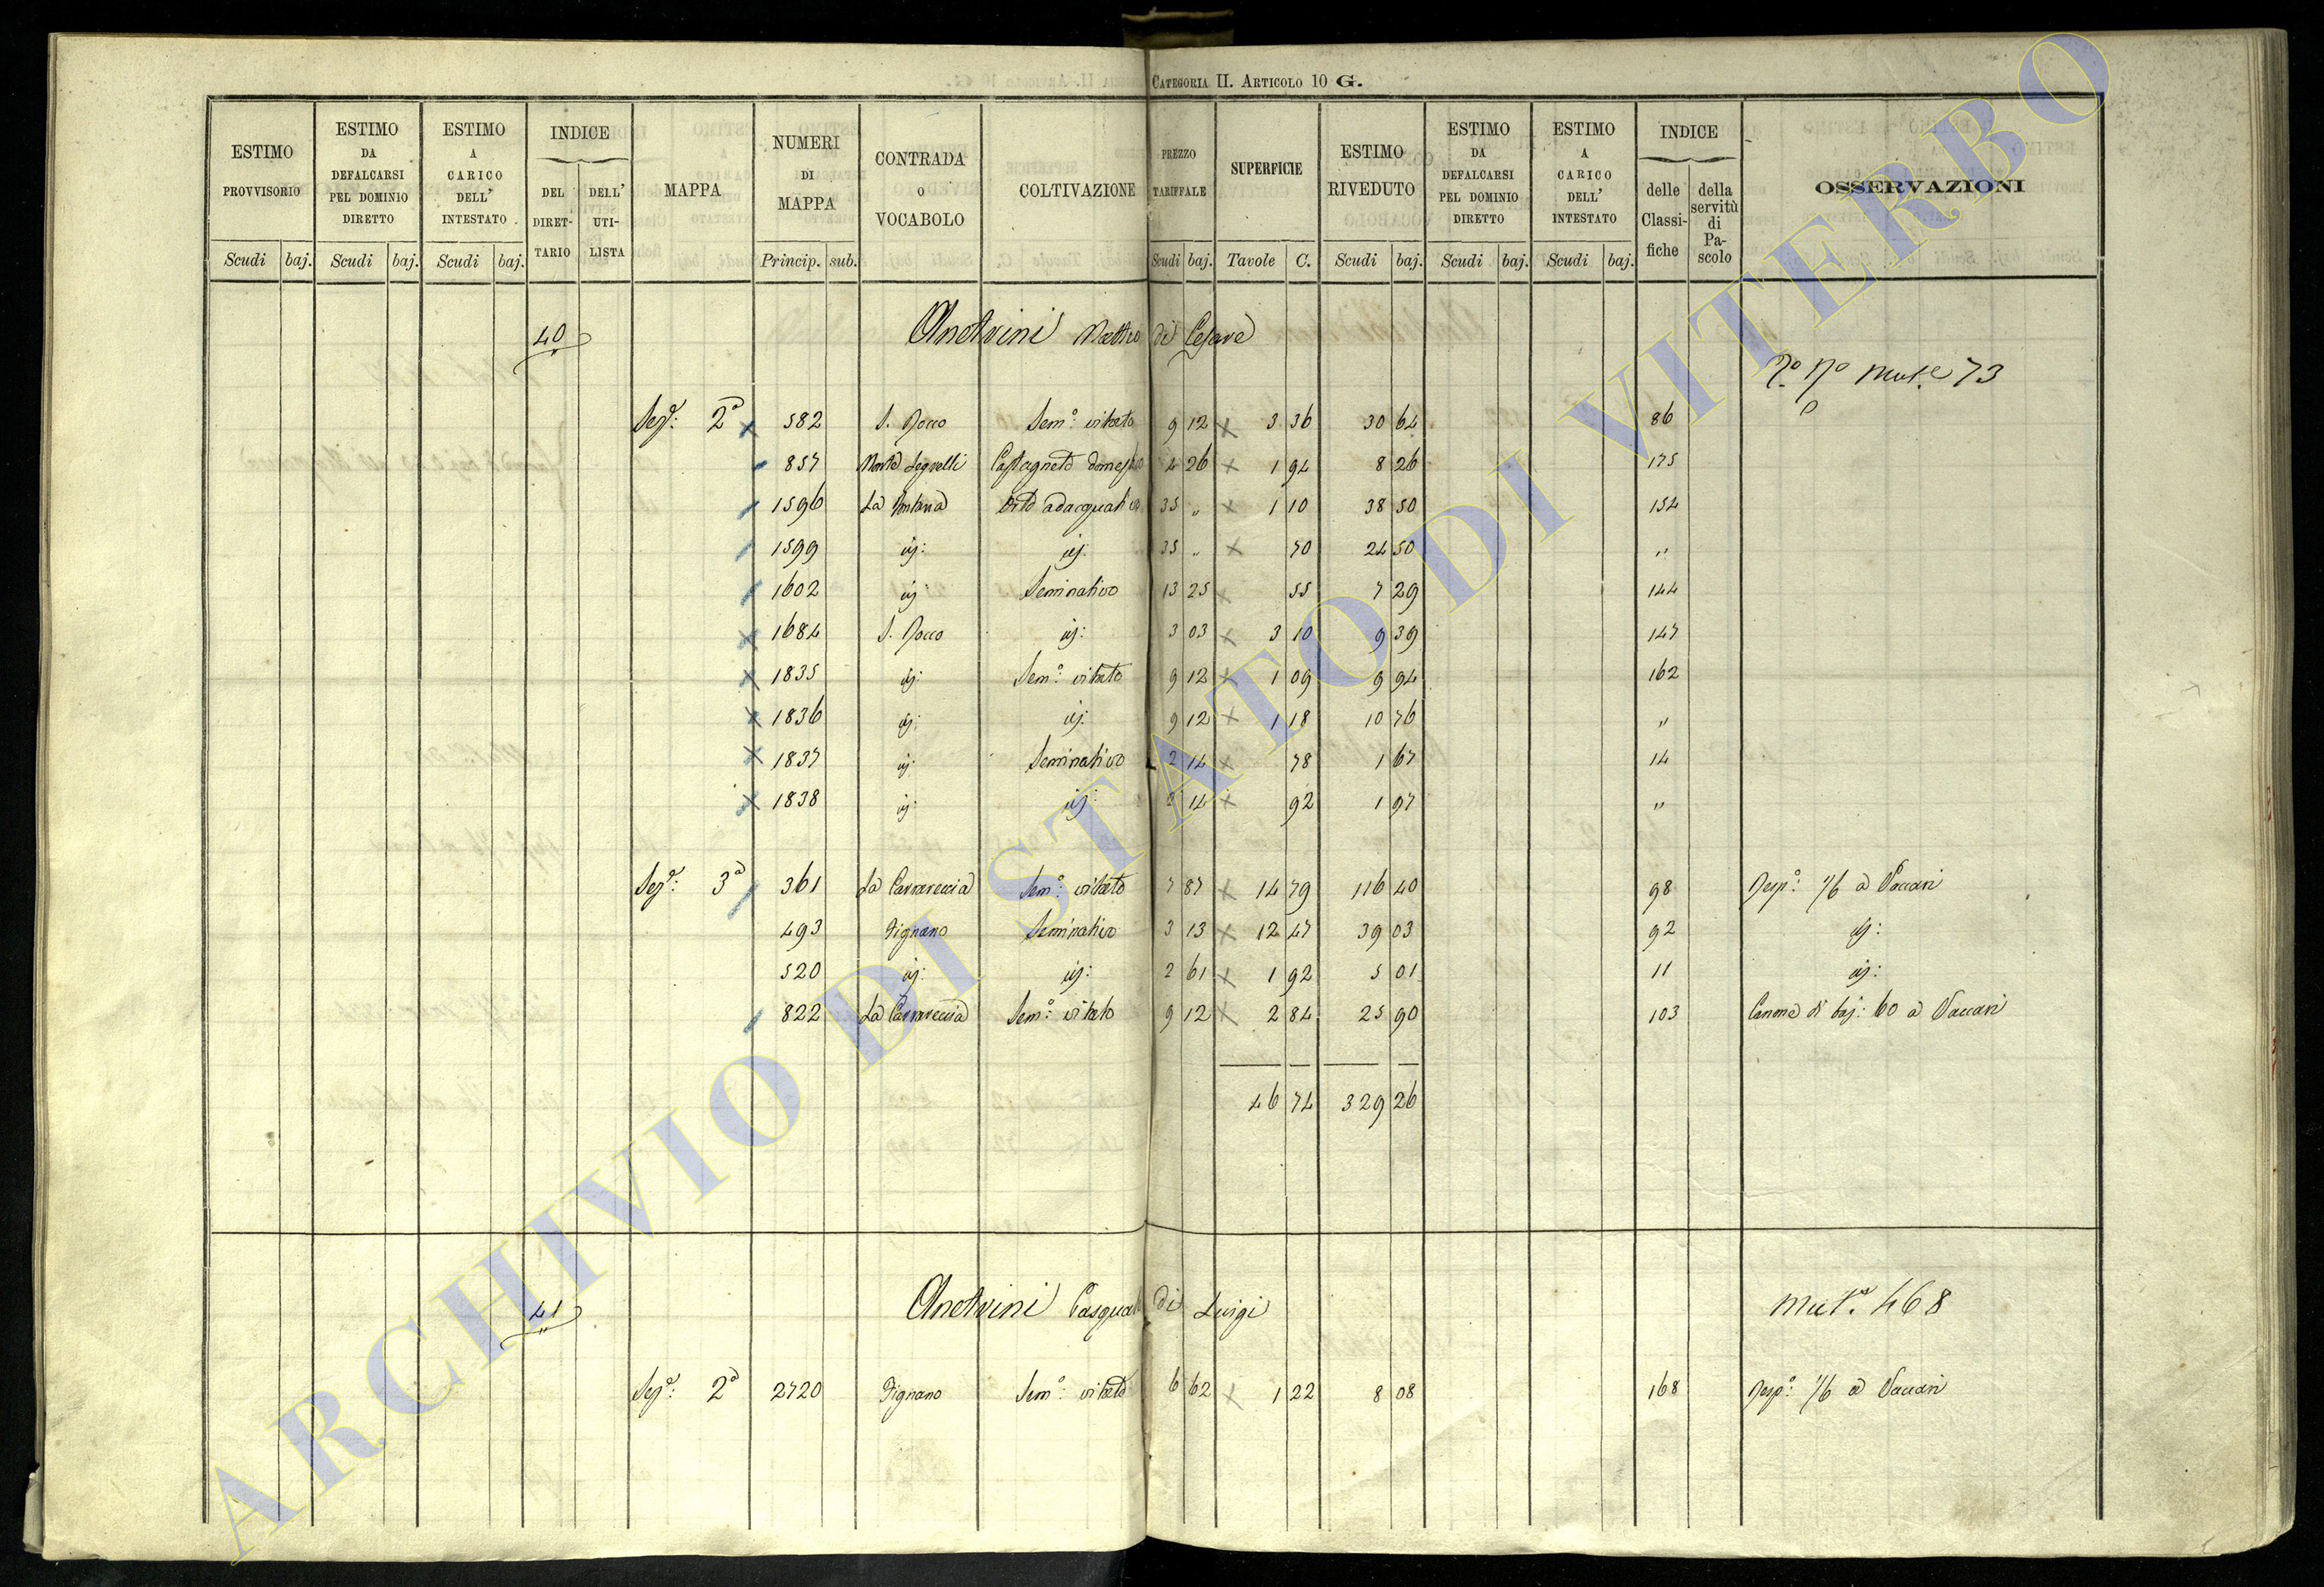 CATEGORIA II. ARTICOLO 10 G.
ESTIMO PROVVISORIO | ESTIMO DA DEFALCARSI PEL DOMINIO DIRETTO | ESTIMO A CARICO DELL' INTESTATO | INDICE DEL DIRETTARIO | DELL' UTILISTA | MAPPA | NUMERI DI MAPPA | CONTRADA O VOCABOLO | COLTIVAZIONE | PREZZO TARIFFALE | SUPERFICIE | ESTIMO RIVEDUTO | ESTIMO DA DEFALCARSI PEL DOMINIO DIRETTO | ESTIMO A CARICO DELL' INTESTATO | INDICE delle Classifiche | della servitù di Pascolo | OSSERVAZIONI
Scudi baj. Scudi baj. Scudi baj. Princip. sub. Scudi baj. Tavole C. Scudi baj. Scudi baj. Scudi baj.
40 di Cesare
73
Sez.e: 2a 582 S. Rocco Sem.o vitato 9 12 3 36 30 64 86
857 Castagneto 4 26 1 94 8 26 175
1596 La Fontana Orto adacquativo 35 " 1 10 38 50 154
1599 id: id: 35 " 70 24 50 "
1602 id: Seminativo 13 25 55 7 29 144
1684 S. Rocco id: 3 03 3 10 9 39 147
1835 id: Sem.o vitato 9 12 1 09 9 94 162
1836 id: id: 9 12 1 18 10 76 "
1837 id: Seminativo 2 14 78 1 67 14
1838 id: id: 2 14 92 1 97 "
Sez.e: 3a 361 La Carareccia Sem.o vitato 7 87 14 79 116 40 98 Resp.o: 1/6 a Vaccari
493 Fignano Seminativo 3 13 12 47 39 03 92 id:
520 id: id: 2 61 1 92 5 01 11 id:
822 La Carareccia Sem.o vitato 9 12 2 84 25 90 103 Canone di baj: 60 a Vaccari
46 74 329 26
41 Pasquale di Luigi
468
Sez.e: 2a 2720 Fignano Sem.o vitato 6 62 1 22 8 08 168 Resp.o: 1/6 a Vaccari
ARCHIVIO DI STATO DI VITERBO